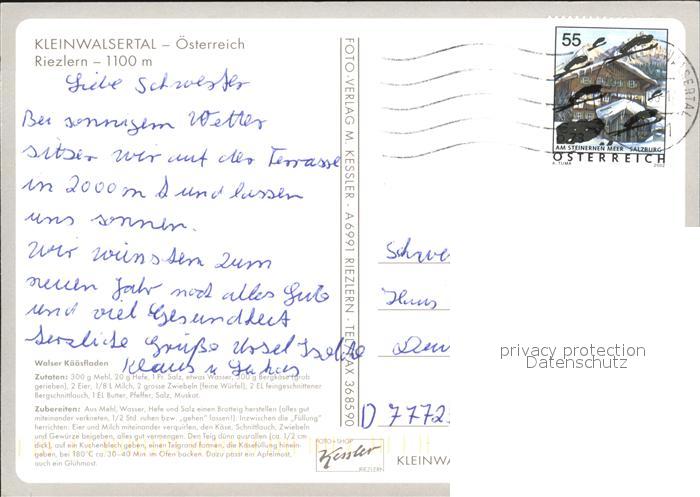 KLEINWALSERTAL – Österreich
Riezlern – 1100 m
Liebe Schwester
Bei sonnigem Wetter
sitzen wir auf der Terrasse
in 2000 m und lassen
uns sonnen.
Wir wünschen zum
neuen Jahr noch alles Gute
und viel Gesundheit
herzliche Grüße
Klaus u
Walser Kääsfladen
Zutaten: 300 g Mehl, 20 g Hefe, 1 Pr. Salz, etwas Wasser, 300 g Bergkäse (grob
gerieben), 2 Eier, 1/8 L Milch, 2 grosse Zwiebeln (feine Würfel), 2 EL feingeschnittener
Bergschnittlauch, 1 EL Butter, Pfeffer, Salz, Muskat.
Zubereiten: Aus Mehl, Wasser, Hefe und Salz einen Brotteig herstellen (alles gut
miteinander verkneten, 1/2 Std. ruhen bzw. „gehen" lassen!). Inzwischen die „Füllung"
herrichten: Eier und Milch miteinander verquirlen, den Käse, Schnittlauch, Zwiebeln
und Gewürze beigeben, alles gut vermengen. Den Teig dünn ausrollen (ca. 1/2 cm
dick), auf ein Kuchenblech geben, einen Teigrand formen, die Käsefüllung hinein-
geben, bei 180°C ca. 30–40 Min. im Ofen backen. Dazu passt ein Apfelmost,
auch ein Glühmost.
FOTO-VERLAG M. KESSLER · A 6991 RIEZLERN · TEL/FAX 368590
55
AM STEINERNEN MEER · SALZBURG
ÖSTERREICH
A. TUMA 2002
WALSERTAL
Schwe
Haus
D 7772
privacy protection
Datenschutz
FOTO + SHOP
Kessler
RIEZLERN
KLEINWA